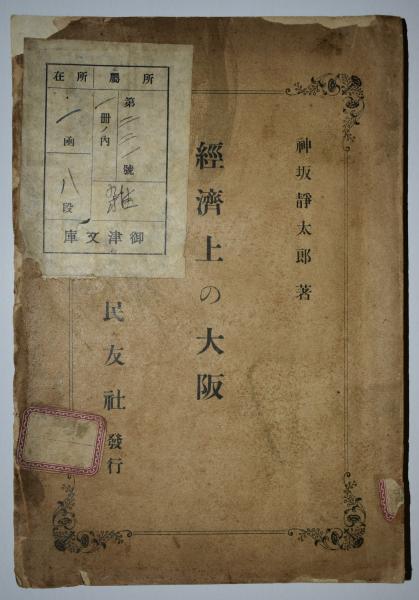 神坂靜太郎 著
經濟上の大阪
民友社 發行
所屬所在
第二三一號
一冊ノ內
雜
一函
八段
御津文庫